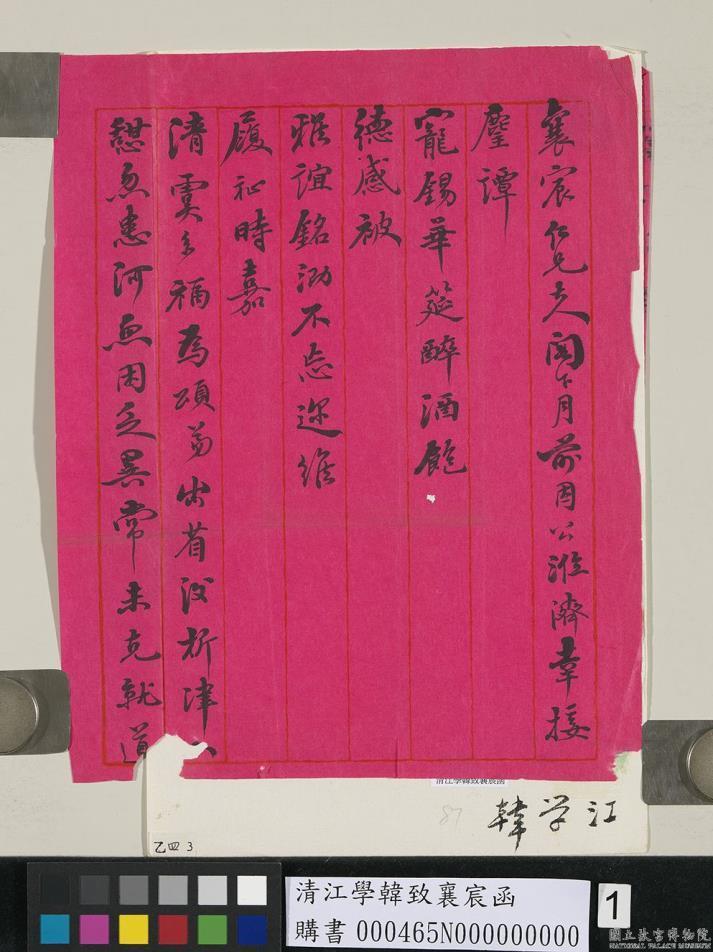 襄宸仁兄大人閣下月前因公淮濟幸接
麈譚
寵錫華筵醉酒飽
德感被
雅誼銘泐不忘邇維
履祉時嘉
清中多福為頌弟出省後折津
忽患河魚困乏異常未克就道
清江學韓致襄宸函
江学韓
87
乙四 3
清江學韓致襄宸函
購書 000465N000000000
1
國立故宮博物院
NATIONAL PALACE MUSEUM